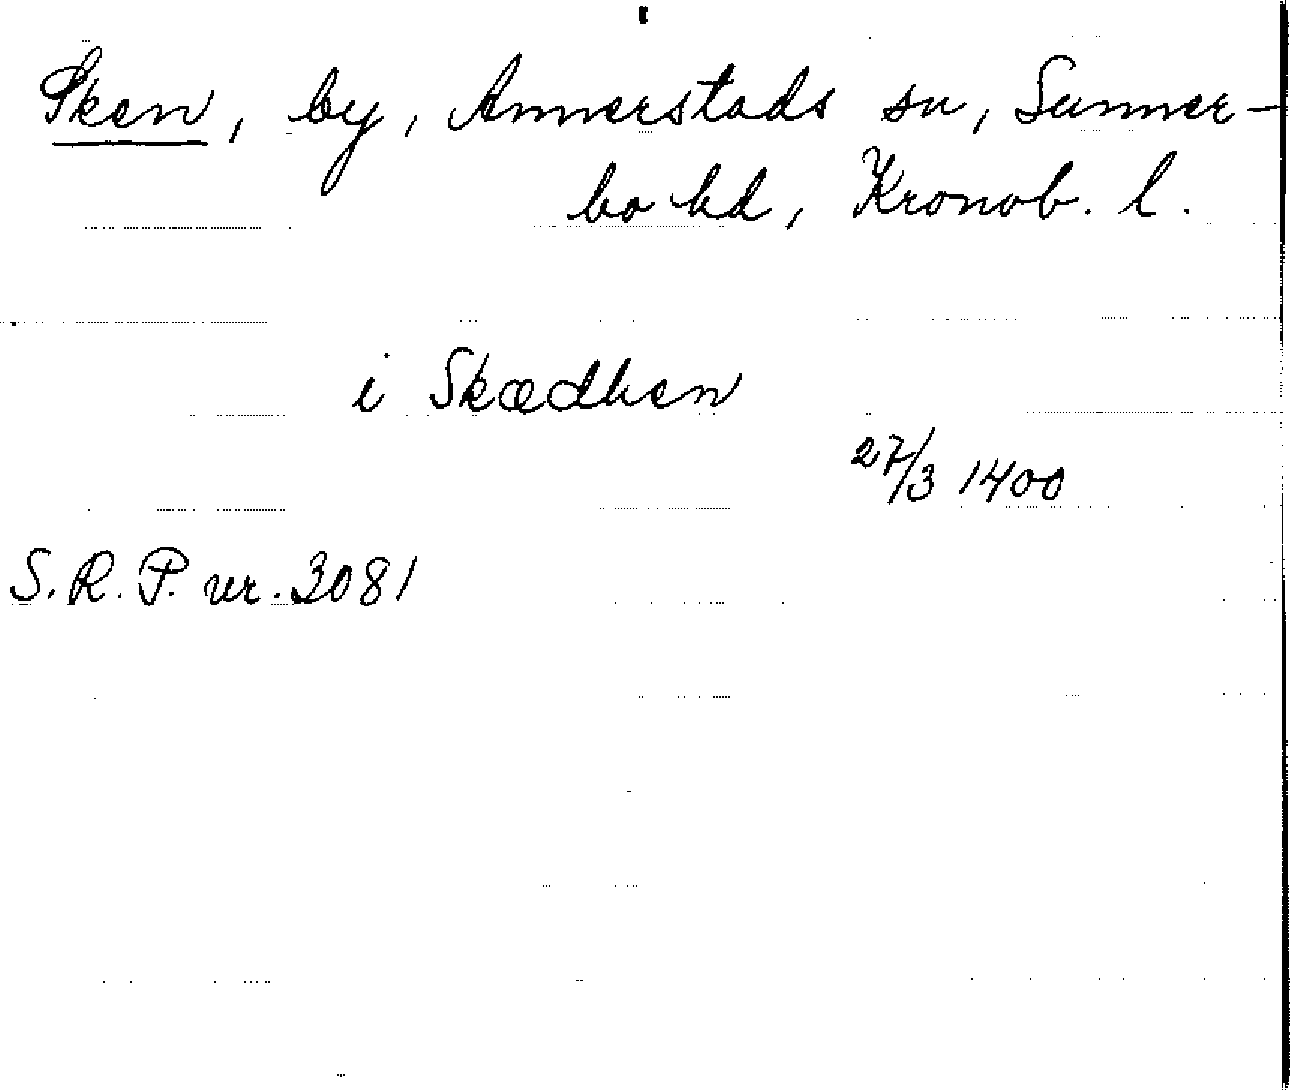 Sken, by, Annerstads sn, Sunner-
bo hd, Kronob. l.
i Skædhen
27/3 1400
S. R. P. nr. 3081